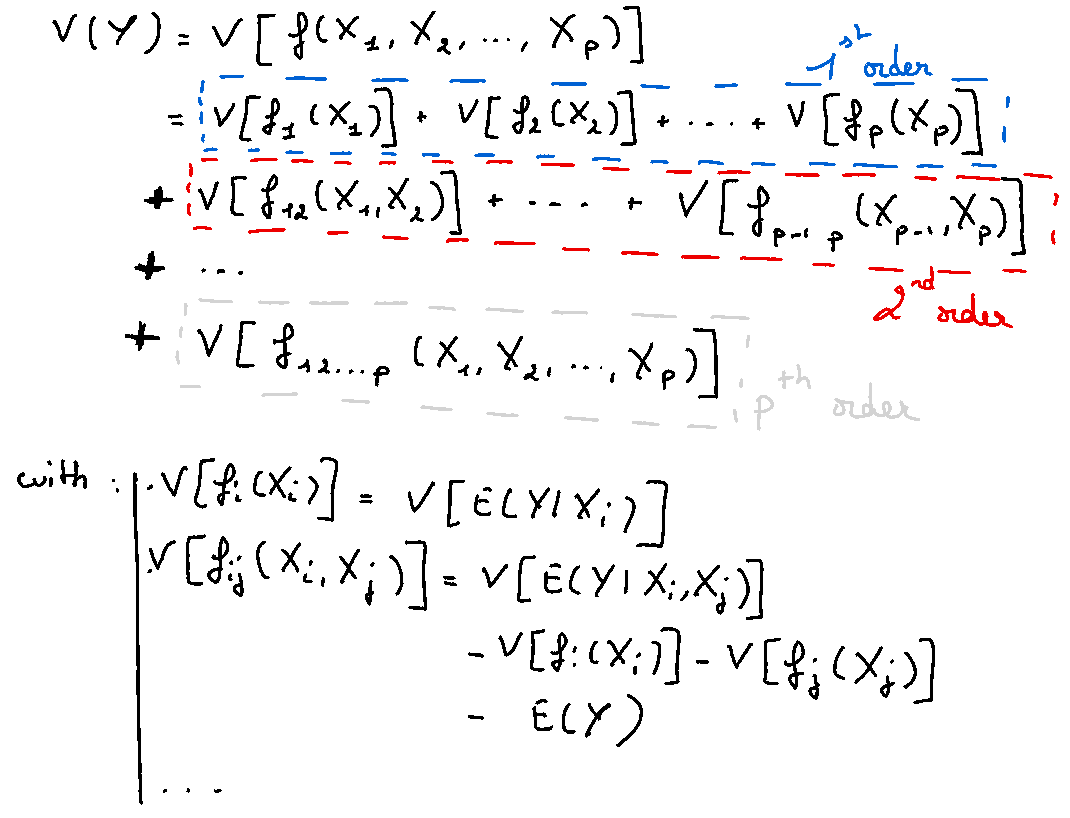 V(Y) = V[f(X₁, X₂, ..., X_p)]
1st order
= V[f₁(X₁)] + V[f₂(X₂)] + ... + V[f_p(X_p)]
+ V[f₁₂(X₁,X₂)] + .... + V[f_{p-1 p}(X_{p-1},X_p)]
+ ...
2nd order
+ V[f_{12...p}(X₁, X₂, ..., X_p)]
pth order
with : . V[f_i(X_i)] = V[E(Y|X_i)]
. V[f_{ij}(X_i,X_j)] = V[E(Y|X_i,X_j)]
- V[f_i(X_i)] - V[f_j(X_j)]
- E(Y)
...